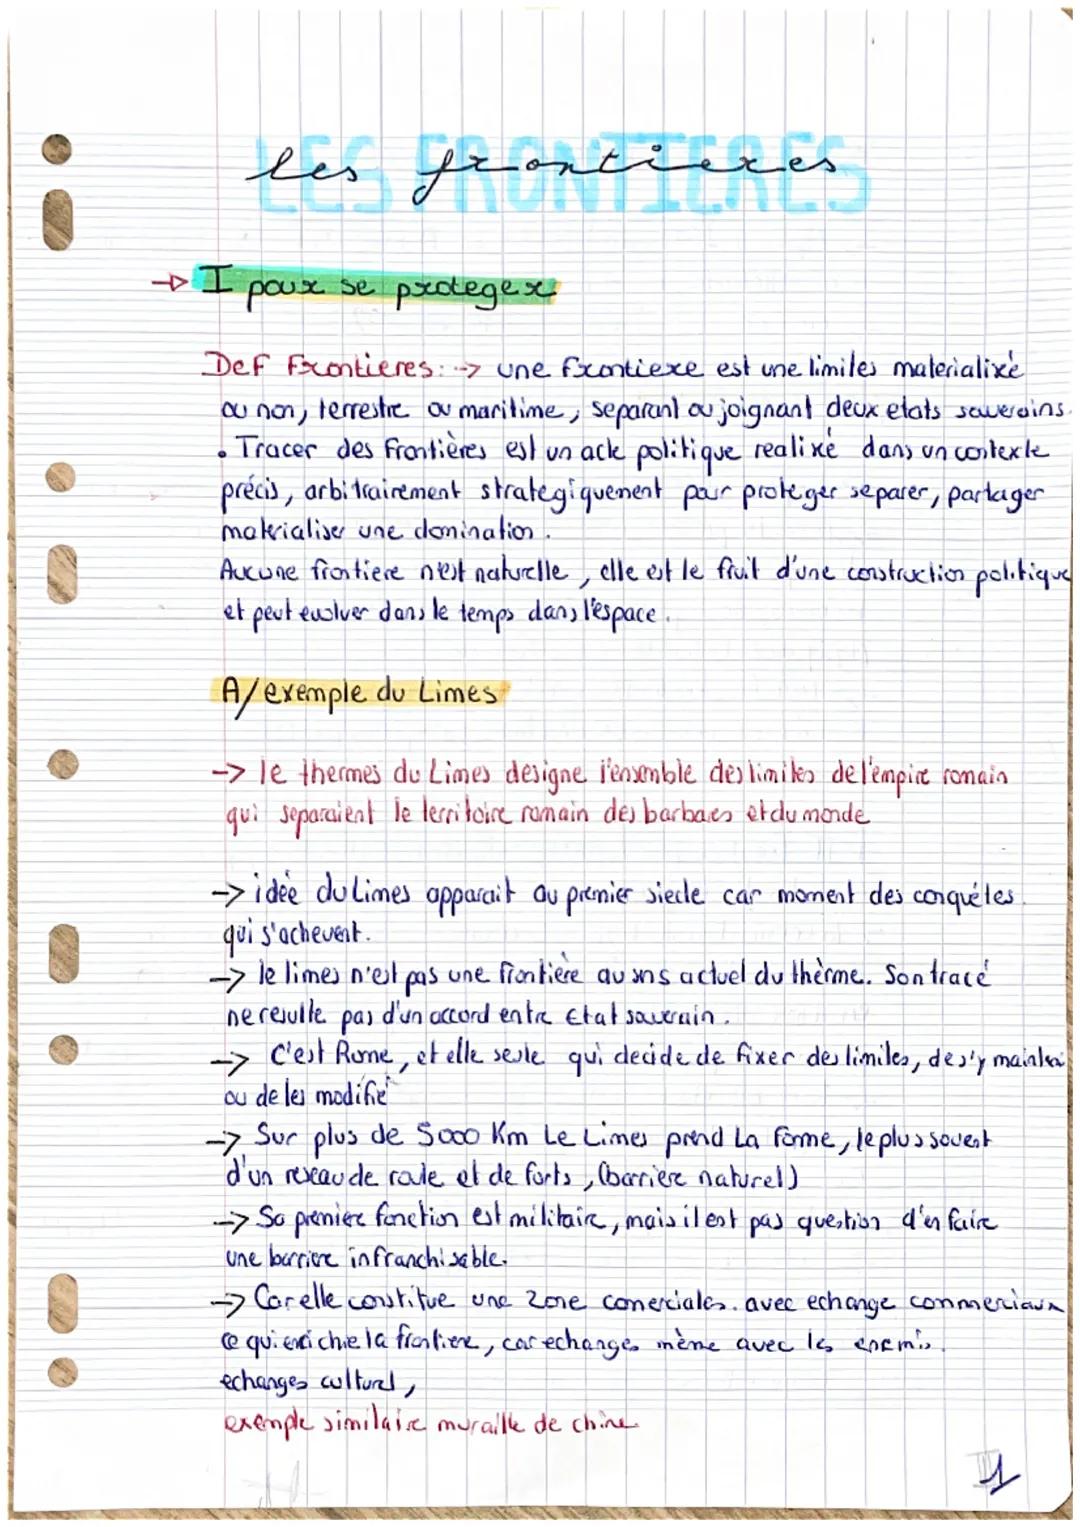 LES FRONTIERES
les frontieres
→ I pour se proteger
Def Frontieres: → une frontiere est une limiles materializé
ou non, terrestre ou maritime, separant ou joignant deux etats souverains.
• Tracer des Frontières est un acte politique realizé dans un contexte
précis, arbitrairement strategiquement pour proteger separer, partager
materialiser une domination.
Aucune frontiere n'est naturelle, elle est le fruit d'une construction politique
et peut evoluer dans le temps dans l'espace.
A/ exemple du Limes
-> le thermes du Limes designe l'ensemble des limites de l'empire romain
qui separaient le territoire romain des barbares et du monde
-> idée du Limes apparait au premier siecle car moment des conquétes
qui s'achevent.
-> le limes n'est pas une frontière au sns actuel du thèrme. Son tracé
ne resulte pas d'un accord entre Etat souverain.
-> C'est Rome, et elle seule qui decide de fixer des limiles, de s'y
ou de les modifié
-> Sur plus de 5000 Km Le Limes prend La forme, le plus souvent
d'un reseau de route et de forts, (barrière naturel)
-> Sa premiere fonction est militaire, mais il est pas question d'en faire
une barriere infranchisable.
-> Car elle constitue une Zone comerciales. avec echange commerciaux
ce qui enrichie la frontiere, car echanges mème avec les enemis.
echanges culturel,
exemple similaire muraille de chine
1